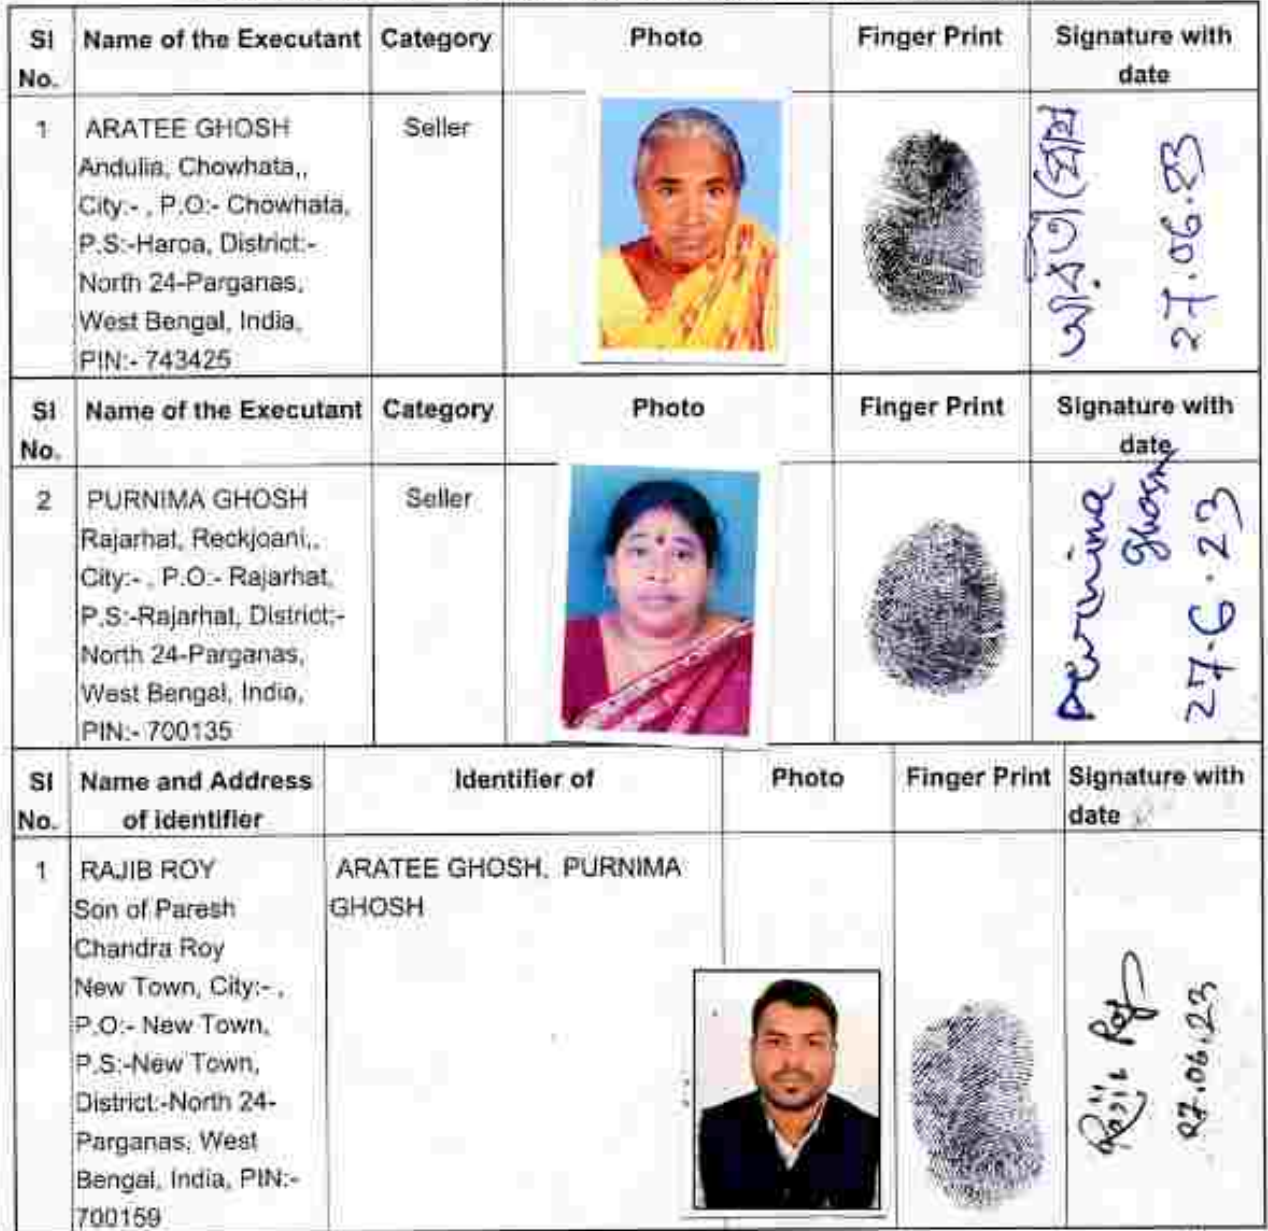 Sl No. Name of the Executant Category Photo Finger Print Signature with date
1 ARATEE GHOSH Seller
Andulia, Chowhata,,
City:- , P.O:- Chowhata,
P.S:-Haroa, District:-
North 24-Parganas,
West Bengal, India,
PIN:- 743425
আরতী ঘোষ
27.06.23
Sl No. Name of the Executant Category Photo Finger Print Signature with date
2 PURNIMA GHOSH Seller
Rajarhat, Reckjoani,,
City:- , P.O:- Rajarhat,
P.S:-Rajarhat, District:-
North 24-Parganas,
West Bengal, India,
PIN:- 700135
Purnima
Ghosh
27.6.23
Sl No. Name and Address of identifier Identifier of Photo Finger Print Signature with date
1 RAJIB ROY ARATEE GHOSH, PURNIMA
Son of Paresh GHOSH
Chandra Roy
New Town, City:- ,
P.O:- New Town,
P.S:-New Town,
District:-North 24-
Parganas, West
Bengal, India, PIN:-
700159
Rajib Roy
27.06.23